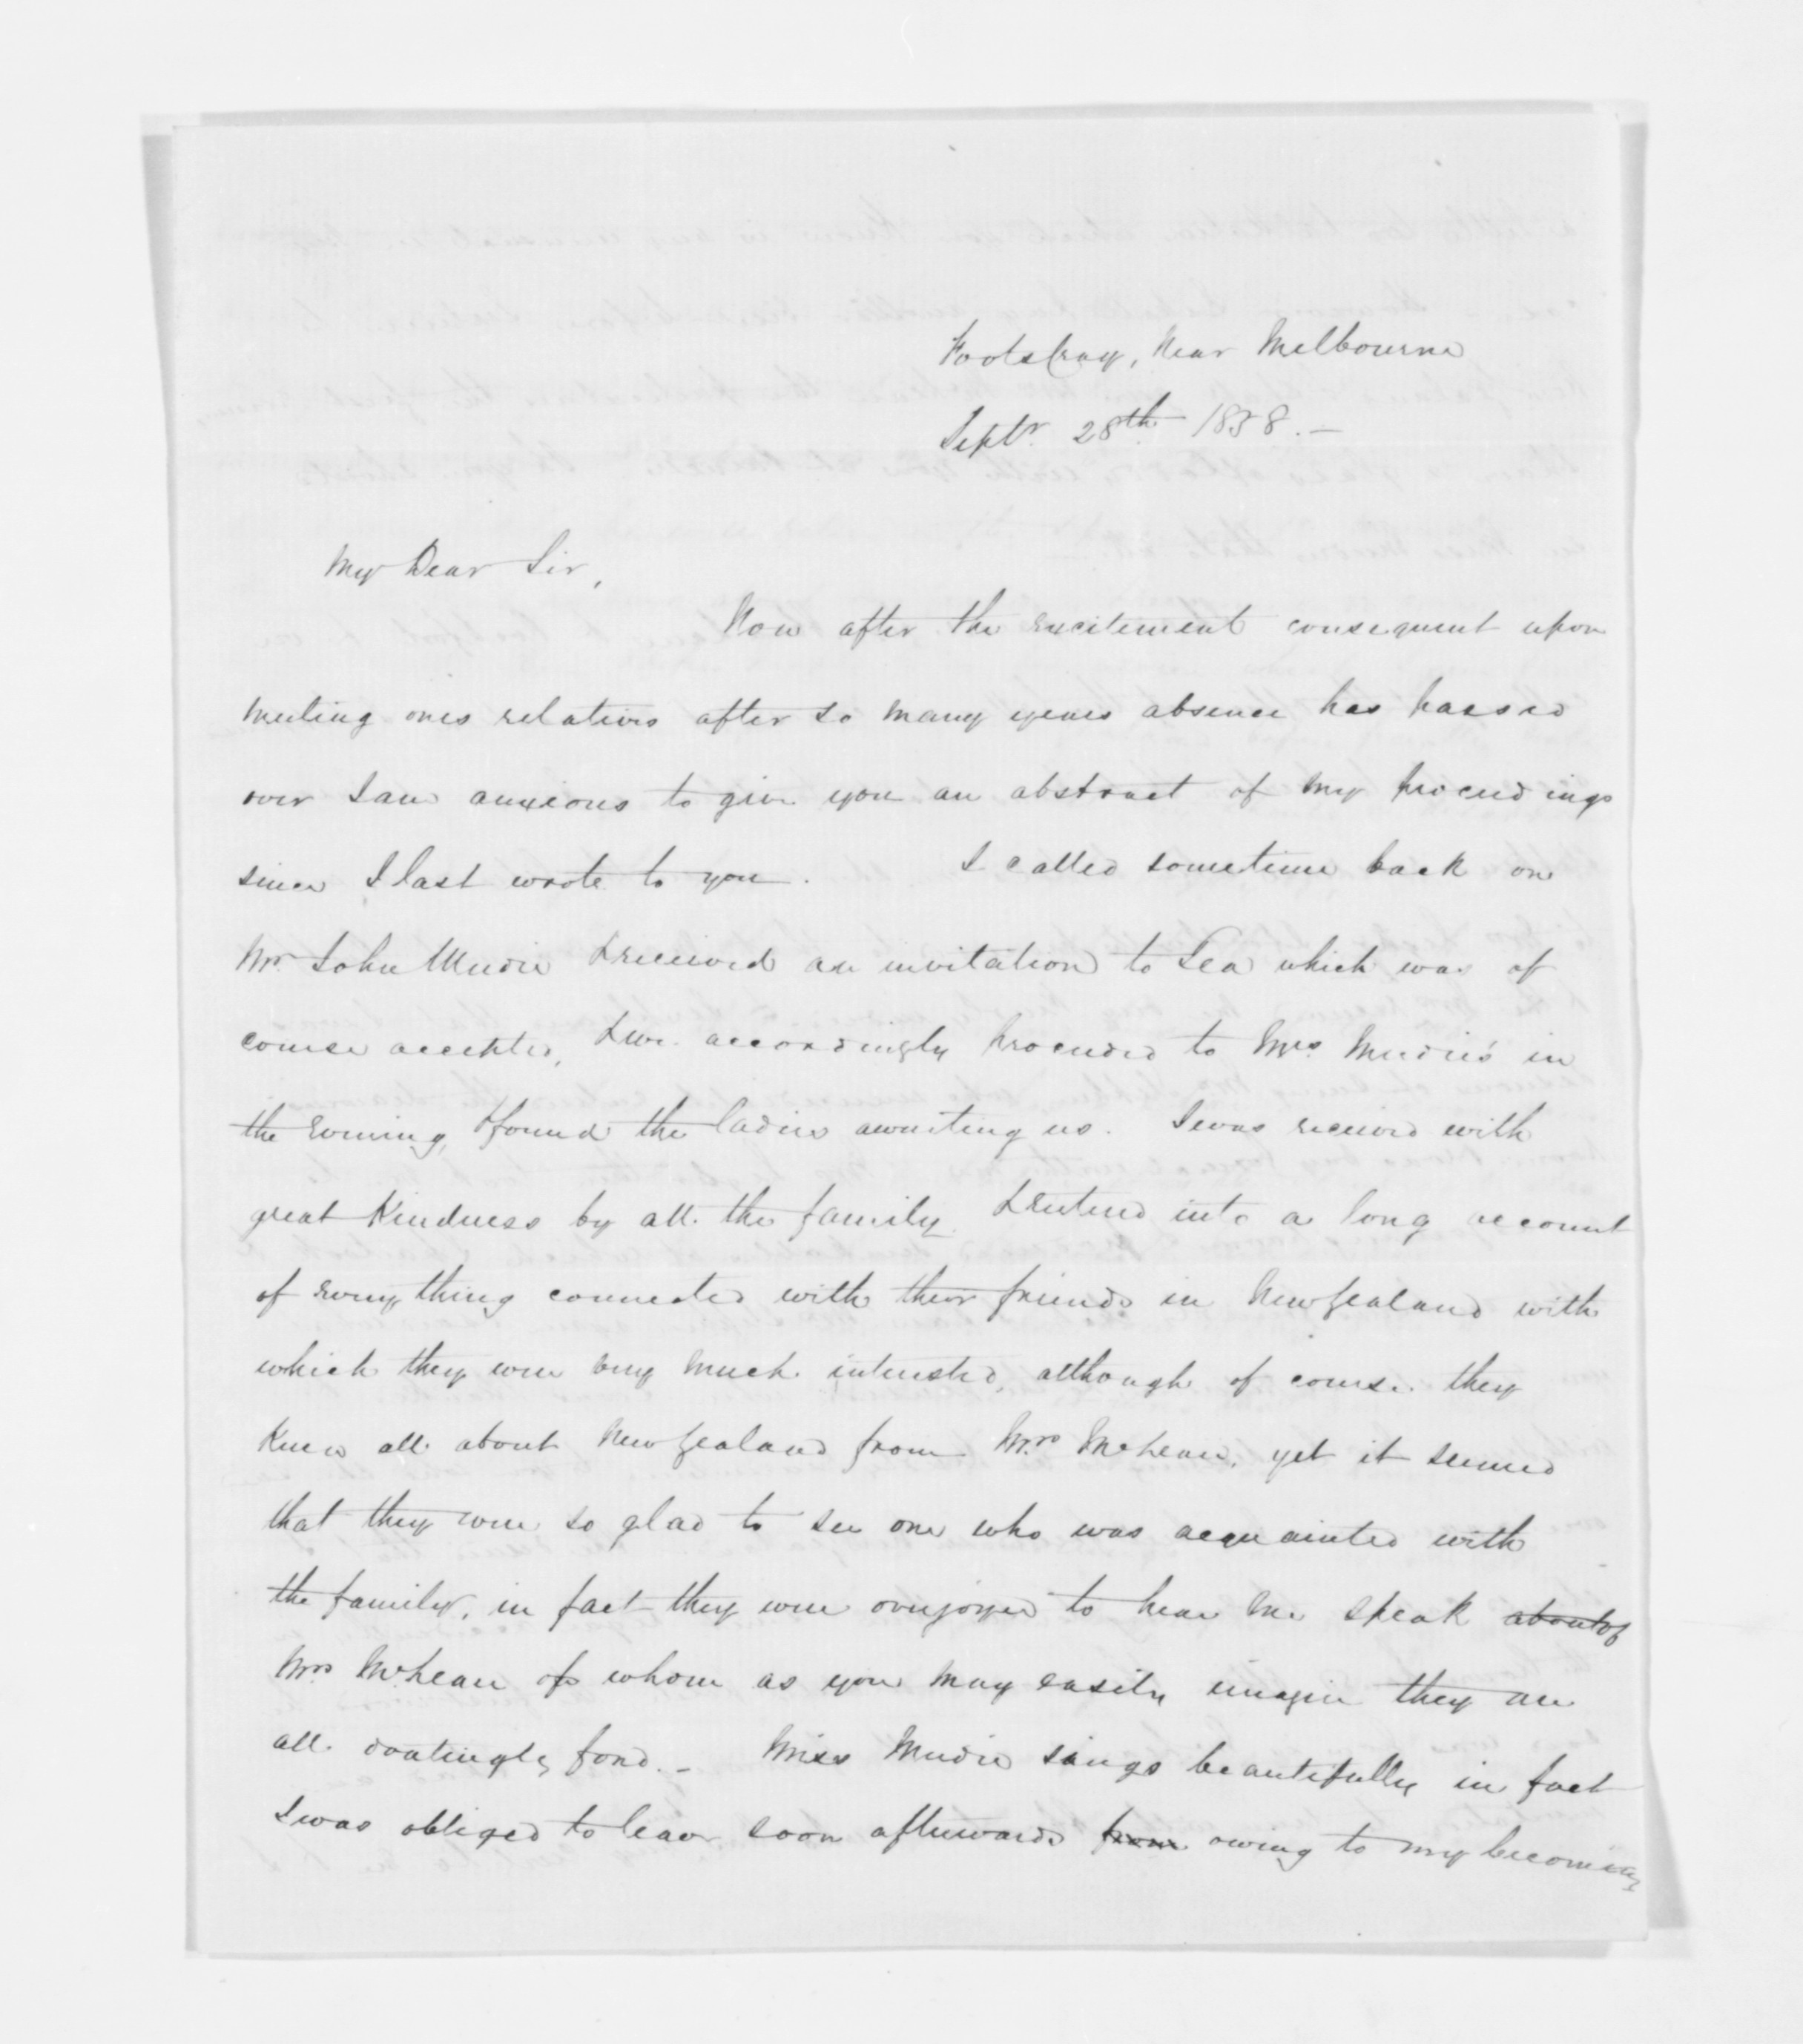 Footscray, Near Melbourne
Septr. 28th 1858. —
My Dear Sir,
Now after the excitement consequent upon
meeting ones relatives after so many years absence has passed
over I am anxious to give you an abstract of my proceedings
since I last wrote to you. I called sometime back on
Mr. John Mudie & received an invitation to Tea which was of
course accepted, & we accordingly proceeded to Mrs. Mudie's in
the evening, & found the ladies awaiting us. I was received with
great kindness by all the family & entered into a long account
of every thing connected with their friends in New Zealand with
which they were very much interested, although of course they
knew all about New Zealand from Mrs. McLean, yet it seemed
that they were so glad to see one who was acquainted with
the family, in fact they were overjoyed to hear me speak about of
Mrs. McLean of whom as you may easily imagin they are
all doatingly fond. — Miss Mudie sings beautifully in fact
I was obliged to leave soon afterwards from owing to my becoming